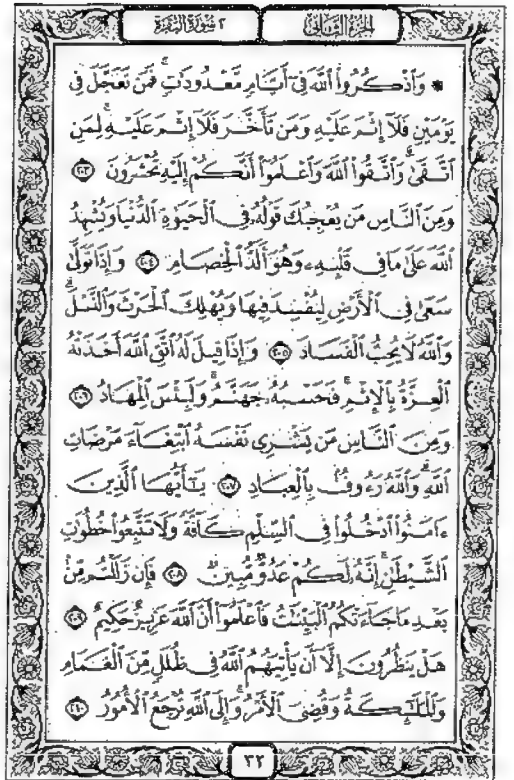 الجزء الثاني
٢ سورة البقرة
* وَٱذۡكُرُواْ ٱللَّهَ فِيٓ أَيَّامٖ مَّعۡدُودَٰتٖۚ فَمَن تَعَجَّلَ فِي
يَوۡمَيۡنِ فَلَآ إِثۡمَ عَلَيۡهِ وَمَن تَأَخَّرَ فَلَآ إِثۡمَ عَلَيۡهِۚ لِمَنِ
ٱتَّقَىٰۗ وَٱتَّقُواْ ٱللَّهَ وَٱعۡلَمُوٓاْ أَنَّكُمۡ إِلَيۡهِ تُحۡشَرُونَ ٢٠٣
وَمِنَ ٱلنَّاسِ مَن يُعۡجِبُكَ قَوۡلُهُۥ فِي ٱلۡحَيَوٰةِ ٱلدُّنۡيَا وَيُشۡهِدُ
ٱللَّهَ عَلَىٰ مَا فِي قَلۡبِهِۦ وَهُوَ أَلَدُّ ٱلۡخِصَامِ ٢٠٤ وَإِذَا تَوَلَّىٰ
سَعَىٰ فِي ٱلۡأَرۡضِ لِيُفۡسِدَ فِيهَا وَيُهۡلِكَ ٱلۡحَرۡثَ وَٱلنَّسۡلَۚ
وَٱللَّهُ لَا يُحِبُّ ٱلۡفَسَادَ ٢٠٥ وَإِذَا قِيلَ لَهُ ٱتَّقِ ٱللَّهَ أَخَذَتۡهُ
ٱلۡعِزَّةُ بِٱلۡإِثۡمِۚ فَحَسۡبُهُۥ جَهَنَّمُۖ وَلَبِئۡسَ ٱلۡمِهَادُ ٢٠٦
وَمِنَ ٱلنَّاسِ مَن يَشۡرِي نَفۡسَهُ ٱبۡتِغَآءَ مَرۡضَاتِ
ٱللَّهِۚ وَٱللَّهُ رَءُوفُۢ بِٱلۡعِبَادِ ٢٠٧ يَٰٓأَيُّهَا ٱلَّذِينَ
ءَامَنُواْ ٱدۡخُلُواْ فِي ٱلسِّلۡمِ كَآفَّةٗ وَلَا تَتَّبِعُواْ خُطُوَٰتِ
ٱلشَّيۡطَٰنِۚ إِنَّهُۥ لَكُمۡ عَدُوّٞ مُّبِينٞ ٢٠٨ فَإِن زَلَلۡتُم مِّنۢ
بَعۡدِ مَا جَآءَتۡكُمُ ٱلۡبَيِّنَٰتُ فَٱعۡلَمُوٓاْ أَنَّ ٱللَّهَ عَزِيزٌ حَكِيمٌ ٢٠٩
هَلۡ يَنظُرُونَ إِلَّآ أَن يَأۡتِيَهُمُ ٱللَّهُ فِي ظُلَلٖ مِّنَ ٱلۡغَمَامِ
وَٱلۡمَلَٰٓئِكَةُ وَقُضِيَ ٱلۡأَمۡرُۚ وَإِلَى ٱللَّهِ تُرۡجَعُ ٱلۡأُمُورُ ٢١٠
٣٢